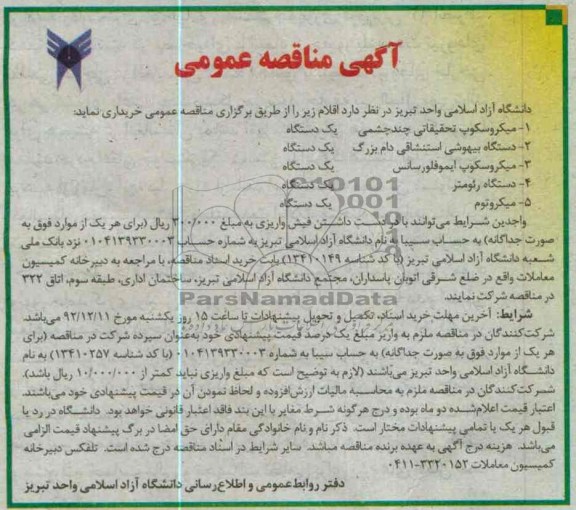 آگهی مناقصه عمومی
دانشگاه آزاد اسلامی واحد تبریز در نظر دارد اقلام زیر را از طریق برگزاری مناقصه عمومی خریداری نماید:
۱- میکروسکوپ تحقیقاتی چندچشمی یک دستگاه
۲- دستگاه بیهوشی استنشاقی دام بزرگ یک دستگاه
۳- میکروسکوپ ایموفلورسانس یک دستگاه
۴- دستگاه رئومتر یک دستگاه
۵- میکروتوم یک دستگاه
واجدین شرایط می‌توانند با در دست داشتن فیش واریزی به مبلغ ۳۰۰/۰۰۰ ریال (برای هر یک از موارد فوق به
صورت جداگانه) به حساب سیبا به نام دانشگاه آزاد اسلامی تبریز به شماره حساب ۰۱۰۴۱۳۹۲۳۰۰۰۳ نزد بانک ملی
شعبه دانشگاه آزاد اسلامی تبریز (با کد شناسه ۱۳۴۱۰۱۴۹) بابت خرید اسناد مناقصه، با مراجعه به دبیرخانه کمیسیون
معاملات واقع در ضلع شرقی اتوبان پاسداران، مجتمع دانشگاه آزاد اسلامی تبریز، ساختمان اداری، طبقه سوم، اتاق ۳۲۲
در مناقصه شرکت نمایند.
ParsNamadData
شرایط: آخرین مهلت خرید اسناد، تکمیل و تحویل پیشنهادات تا ساعت ۱۵ روز یکشنبه مورخ ۹۲/۱۲/۱۱ می‌باشد.
شرکت‌کنندگان در مناقصه ملزم به واریز مبلغ یک درصد قیمت پیشنهادی خود به‌عنوان سپرده شرکت در مناقصه (برای
هر یک از موارد فوق به صورت جداگانه) به حساب سیبا به شماره ۰۱۰۴۱۳۹۳۳۰۰۰۳ (با کد شناسه ۱۳۴۱۰۲۵۷) به نام
دانشگاه آزاد اسلامی واحد تبریز می‌باشند (لازم به توضیح است که مبلغ واریزی نباید کمتر از ۱۰/۰۰۰/۰۰۰ ریال باشد).
شرکت‌کنندگان در مناقصه ملزم به محاسبه مالیات ارزش‌افزوده و لحاظ نمودن آن در قیمت پیشنهادی خود می‌باشند.
اعتبار قیمت اعلام‌شده دو ماه بوده و درج هرگونه شرط مغایر با این بند فاقد اعتبار قانونی خواهد بود. دانشگاه در رد یا
قبول هر یک یا تمامی پیشنهادات مختار است. ذکر نام و نام خانوادگی مقام دارای حق امضا در برگ پیشنهاد قیمت الزامی
می‌باشد. هزینه درج آگهی به عهده برنده مناقصه مباشد. سایر شرایط در اسناد مناقصه درج شده است. تلفکس دبیرخانه
کمیسیون معاملات ۳۳۲۰۱۵۲-۰۴۱۱
دفتر روابط‌عمومی و اطلاع‌رسانی دانشگاه آزاد اسلامی واحد تبریز